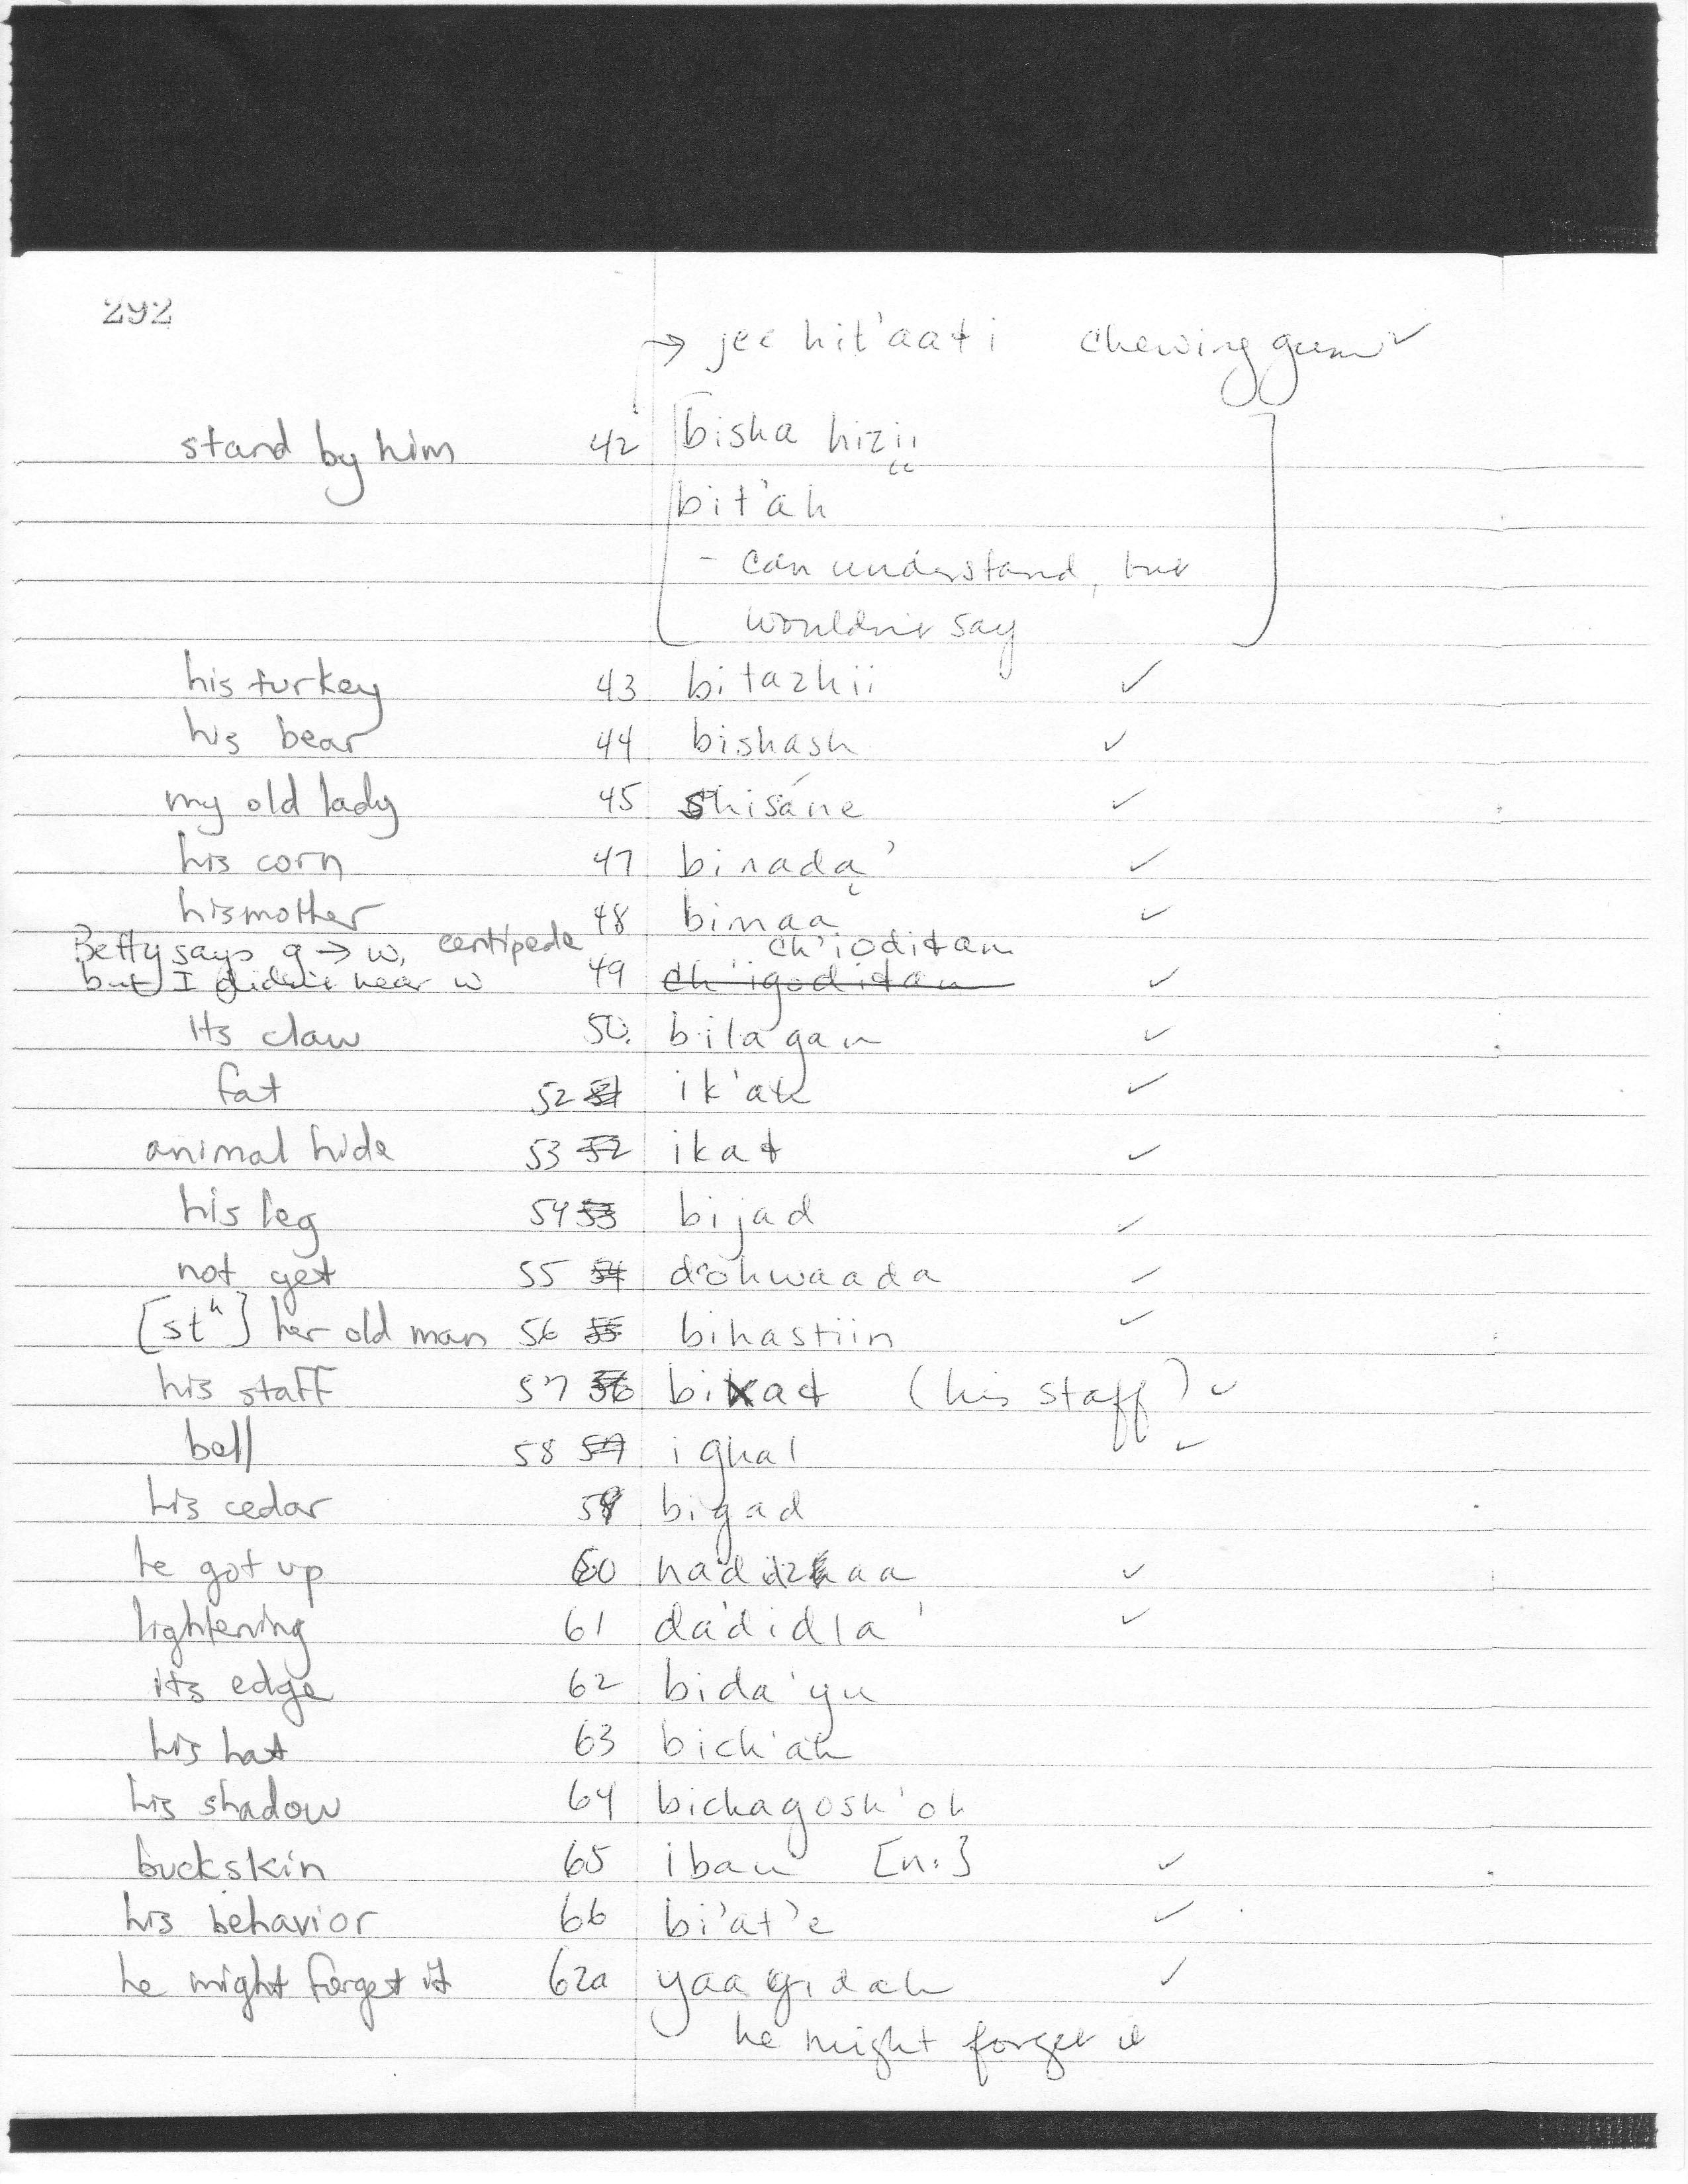 292
→ jee hit'aałi chewing gum ✓
stand by him 42 bisha hizįį
bit'ah
- can understand, but
wouldn't say
his turkey 43 bitazhii ✓
his bear 44 bishash ✓
my old lady 45 shisáne ✓
his corn 47 binadą' ✓
his mother 48 bimaa ✓
Betty says g → w, centipede ch'ioditan
but I didn't hear w 49 ch'igoditan ✓
its claw 50. bilagan ✓
fat 52 51 ik'ah ✓
animal hide 53 52 ikał ✓
his leg 54 53 bijad ✓
not get 55 54 dohwaada ✓
[stʰ] her old man 56 55 bihastiin ✓
his staff 57 56 bikał (his staff) ✓
bell 58 57 ighal ✓
his cedar 59 bigad
he got up 60 ✓
lightening 61 da'didla' ✓
its edge 62 bida'yu
his hat 63 bich'ah
his shadow 64 bichagosh'oh
buckskin 65 iban [n:] ✓
his behavior 66 bi'at'e ✓
he might forget it 62a yaayidah ✓
he might forget it